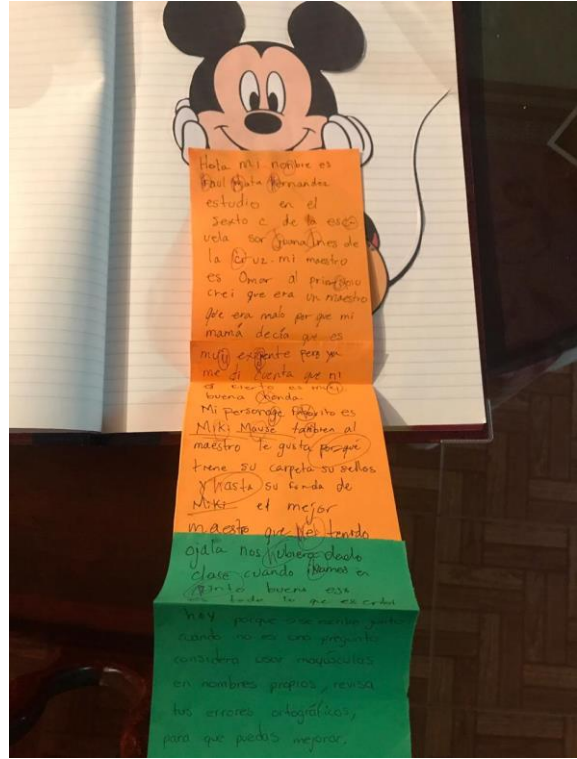 Hola mi nombre es
Paul Mata Hernandez
estudio en el
Sexto c de la esc
vela sor Juana Ines de
la Cruz. mi maestro
es Omar al principio
crei que era un maestro
que era malo por que mi
mamá decía que es
muy exigente pero ya
me di cuenta que ni
es
buena honda
Mi personage faborito es
Miki Mouse tanbien al
maestro le gusta porque
tiene su carpeta su sellos
y hasta su funda de
Miki el mejor
maestro que he tenido
ojala nos hubiera dado
clase cuando ivamos en
buena eso
es todo lo que
hay porque junto
cuando no es una pregunta
considera usar mayúsculas
en nombres propios, revisa
tus errores ortográficos,
para que puedas mejorar.